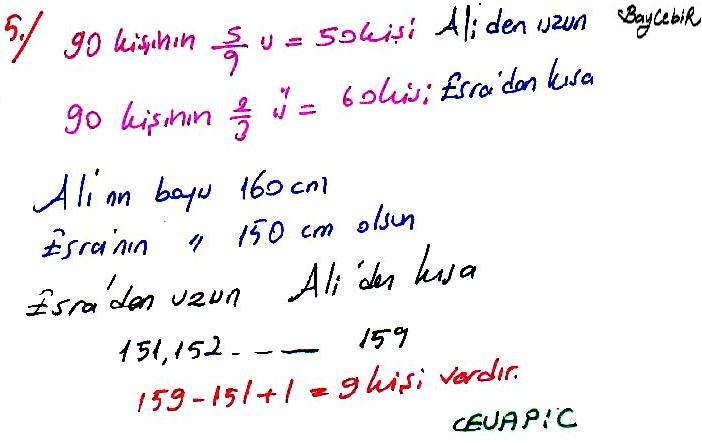 5./ 90 kişinin 5/9 u = 50kişi Ali'den uzun BayCebiR
90 kişinin 2/3 ü = 60kişi Esra'dan kısa
Ali'nn boyu 160 cm
Esra'nın " 150 cm olsun
Esra'dan uzun Ali'den kısa
151, 152 - - — 159
159-151+1 = 9 kişi vardır.
CEVAP:C